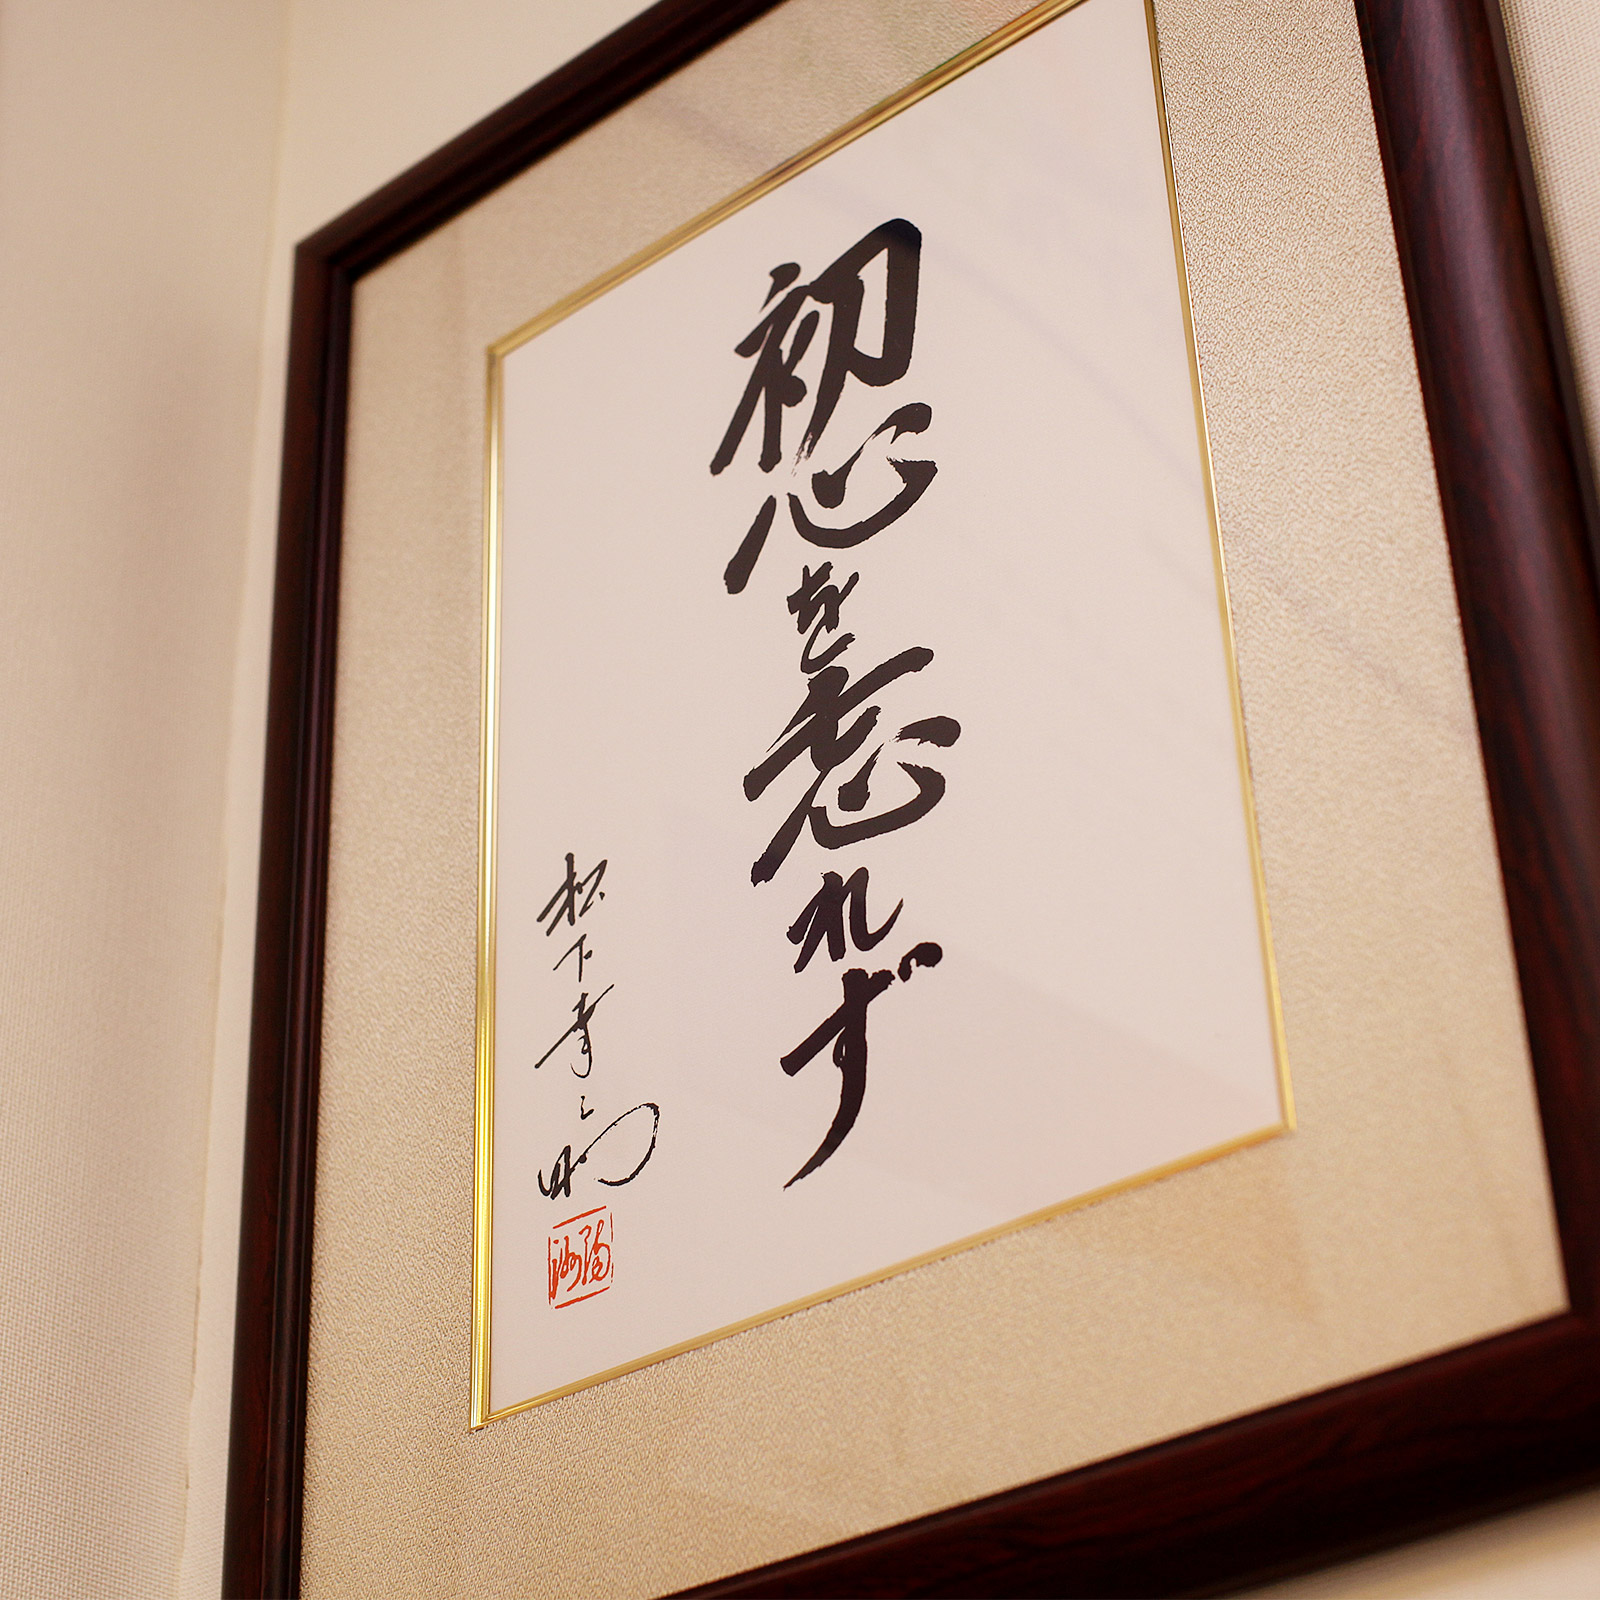 初心を忘れず
松下幸之助
陽洲